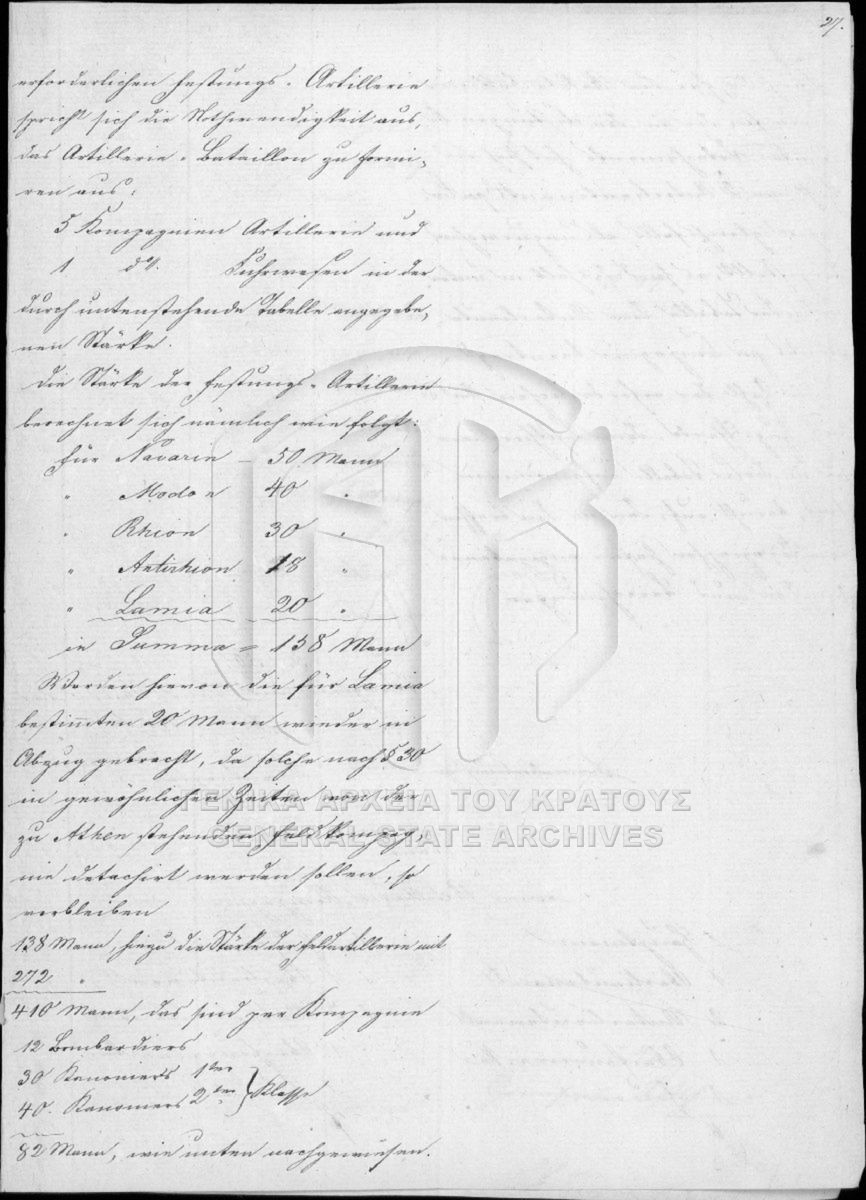 27.
erforderlichen Festungs-Artillerie
spricht sich die Nothwendigkeit aus,
das Artillerie-Bataillon zu formi-
ren aus:
5 Kompagnien Artillerie und
1 do. Fuhrwesen in der
durch untenstehende Tabelle angegebe-
nen Stärke.
Die Stärke der Festungs-Artillerie
berechnet sich nämlich wie folgt:
für Navarin - 50 Mann
" Modon 40 "
" Rhion 30 "
" Antirhion 18 "
" Lamia 20 "
in Summa = 158 Mann
Werden hievon die für Lamia
bestimten 20 Mann wieder in
Abzug gebracht, da solche nach § 30
in gewöhnlichen Zeiten von der
zu Athen stehenden Feldkompag-
nie detachirt werden sollen, so
verbleiben
138 Mann, hiezu die Stärke der Feldartillerie mit
272 "
410 Mann, das sind per Kompagnie
12 Bombardiers
30 Kanoniers 1ter
40. Kanoniers 2ter } Klasse
82 Mann, wie unten nachgewiesen.
ΓΕΝΙΚΑ ΑΡΧΕΙΑ ΤΟΥ ΚΡΑΤΟΥΣ
GENERAL STATE ARCHIVES